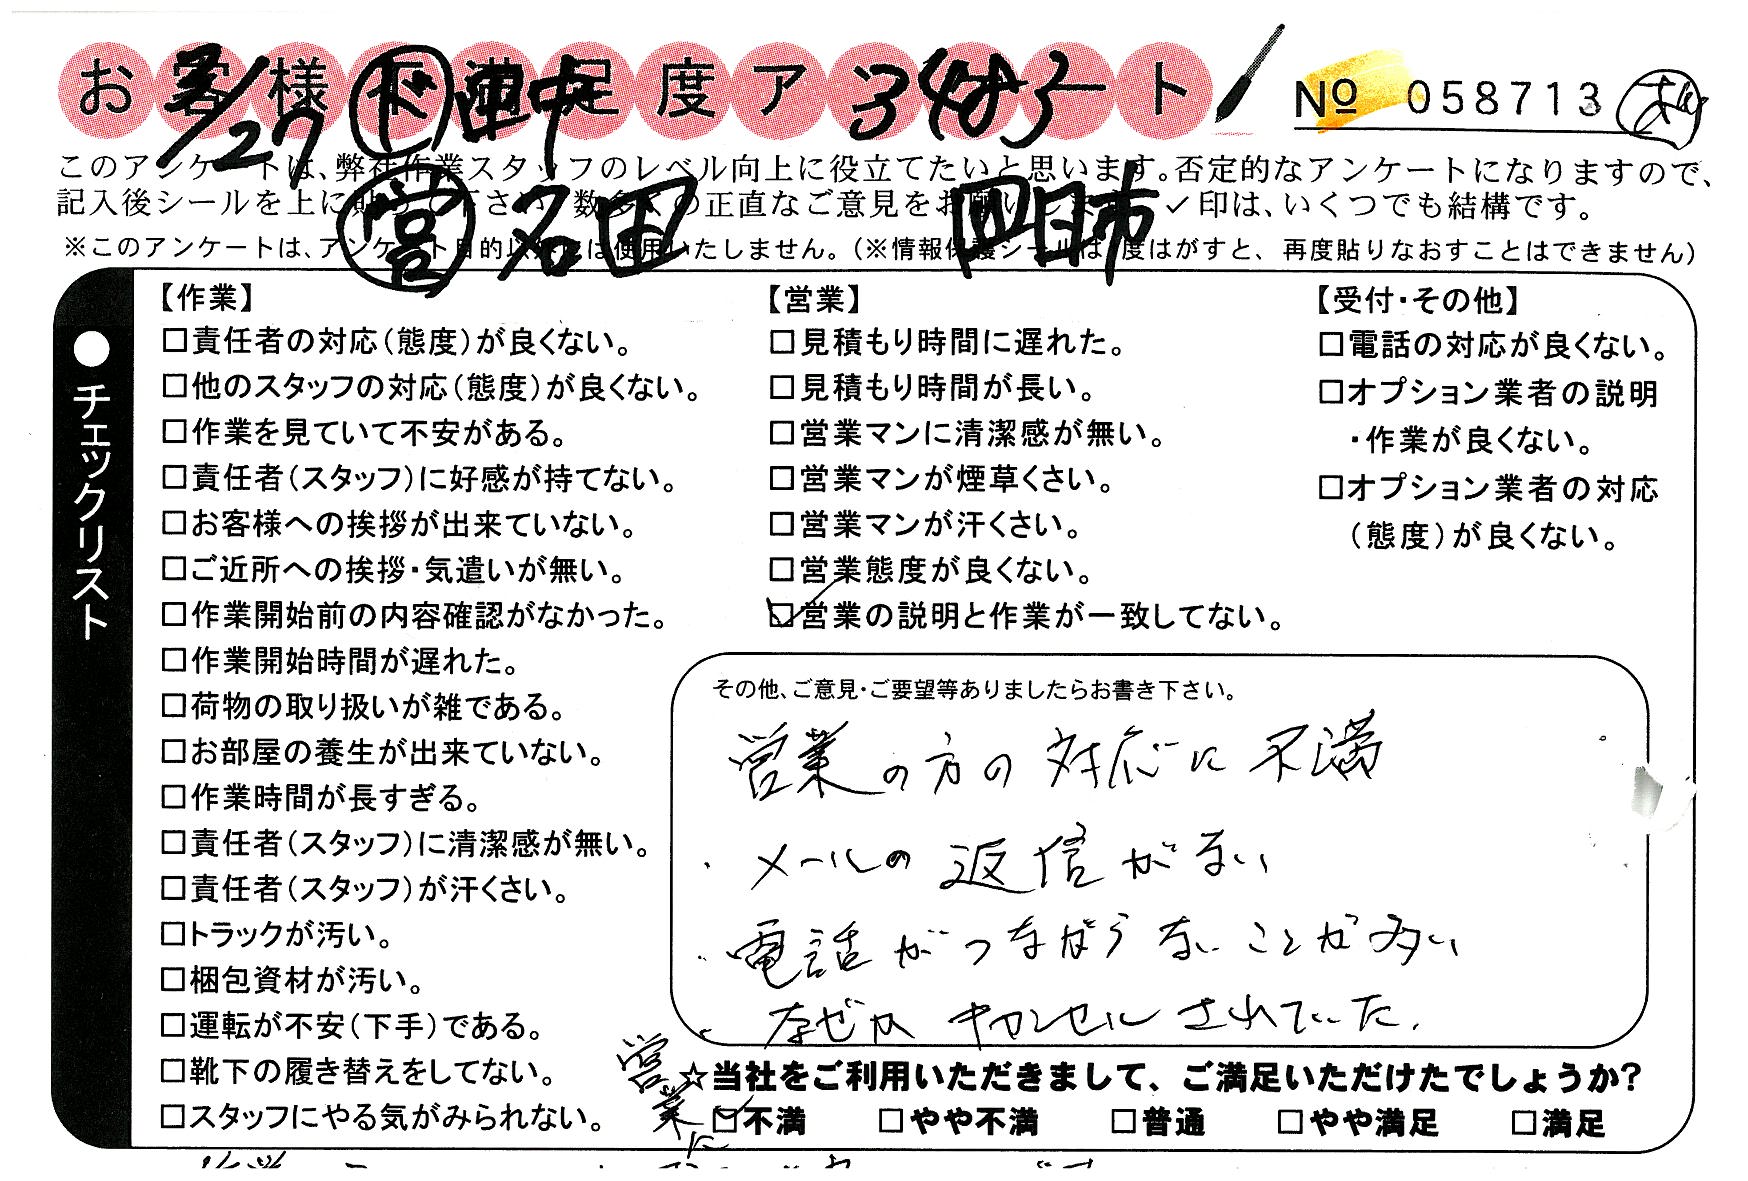 お客様不満足度アンケート
№ 058713
ド 田中 3483
営 名田 四日市
このアンケートは、弊社作業スタッフのレベル向上に役立てたいと思います。否定的なアンケートになりますので、
記入後シールを上に貼って下さい。数多くの正直なご意見をお願いします。✓印は、いくつでも結構です。
※このアンケートは、アンケート目的以外には使用いたしません。(※情報保護シールは1度はがすと、再度貼りなおすことはできません)
●チェックリスト
【作業】
□責任者の対応(態度)が良くない。
□他のスタッフの対応(態度)が良くない。
□作業を見ていて不安がある。
□責任者(スタッフ)に好感が持てない。
□お客様への挨拶が出来ていない。
□ご近所への挨拶・気遣いが無い。
□作業開始前の内容確認がなかった。
□作業開始時間が遅れた。
□荷物の取り扱いが雑である。
□お部屋の養生が出来ていない。
□作業時間が長すぎる。
□責任者(スタッフ)に清潔感が無い。
□責任者(スタッフ)が汗くさい。
□トラックが汚い。
□梱包資材が汚い。
□運転が不安(下手)である。
□靴下の履き替えをしてない。
□スタッフにやる気がみられない。
【営業】
□見積もり時間に遅れた。
□見積もり時間が長い。
□営業マンに清潔感が無い。
□営業マンが煙草くさい。
□営業マンが汗くさい。
□営業態度が良くない。
☑営業の説明と作業が一致してない。
【受付・その他】
□電話の対応が良くない。
□オプション業者の説明
・作業が良くない。
□オプション業者の対応
(態度)が良くない。
その他、ご意見・ご要望等ありましたらお書き下さい。
営業の方の対応に不満
・メールの返信がない
・電話がつながらないことが多い
・なぜか キャンセルされていた.
☆当社をご利用いただきまして、ご満足いただけたでしょうか?
営業に
☑不満 □やや不満 □普通 □やや満足 □満足